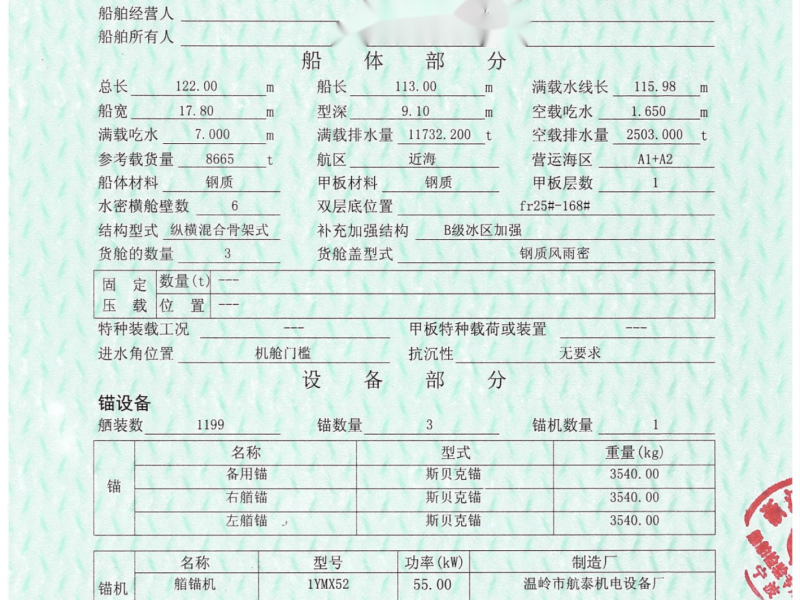 船舶经营人
船舶所有人
船 体 部 分
总长 122.00 m 船长 113.00 m 满载水线长 115.98 m
船宽 17.80 m 型深 9.10 m 空载吃水 1.650 m
满载吃水 7.000 m 满载排水量 11732.200 t 空载排水量 2503.000 t
参考载货量 8665 t 航区 近海 营运海区 A1+A2
船体材料 钢质 甲板材料 钢质 甲板层数 1
水密横舱壁数 6 双层底位置 fr25#-168#
结构型式 纵横混合骨架式 补充加强结构 B级冰区加强
货舱的数量 3 货舱盖型式 钢质风雨密
固 定 数量(t) ---
压 载 位 置 ---
特种装载工况 --- 甲板特种载荷或装置 ---
进水角位置 机舱门槛 抗沉性 无要求
设 备 部 分
锚设备
舾装数 1199 锚数量 3 锚机数量 1
锚 名称 型式 重量(kg)
备用锚 斯贝克锚 3540.00
右艏锚 斯贝克锚 3540.00
左艏锚 斯贝克锚 3540.00
锚机 名称 型号 功率(kW) 制造厂
艏锚机 1YMX52 55.00 温岭市航泰机电设备厂